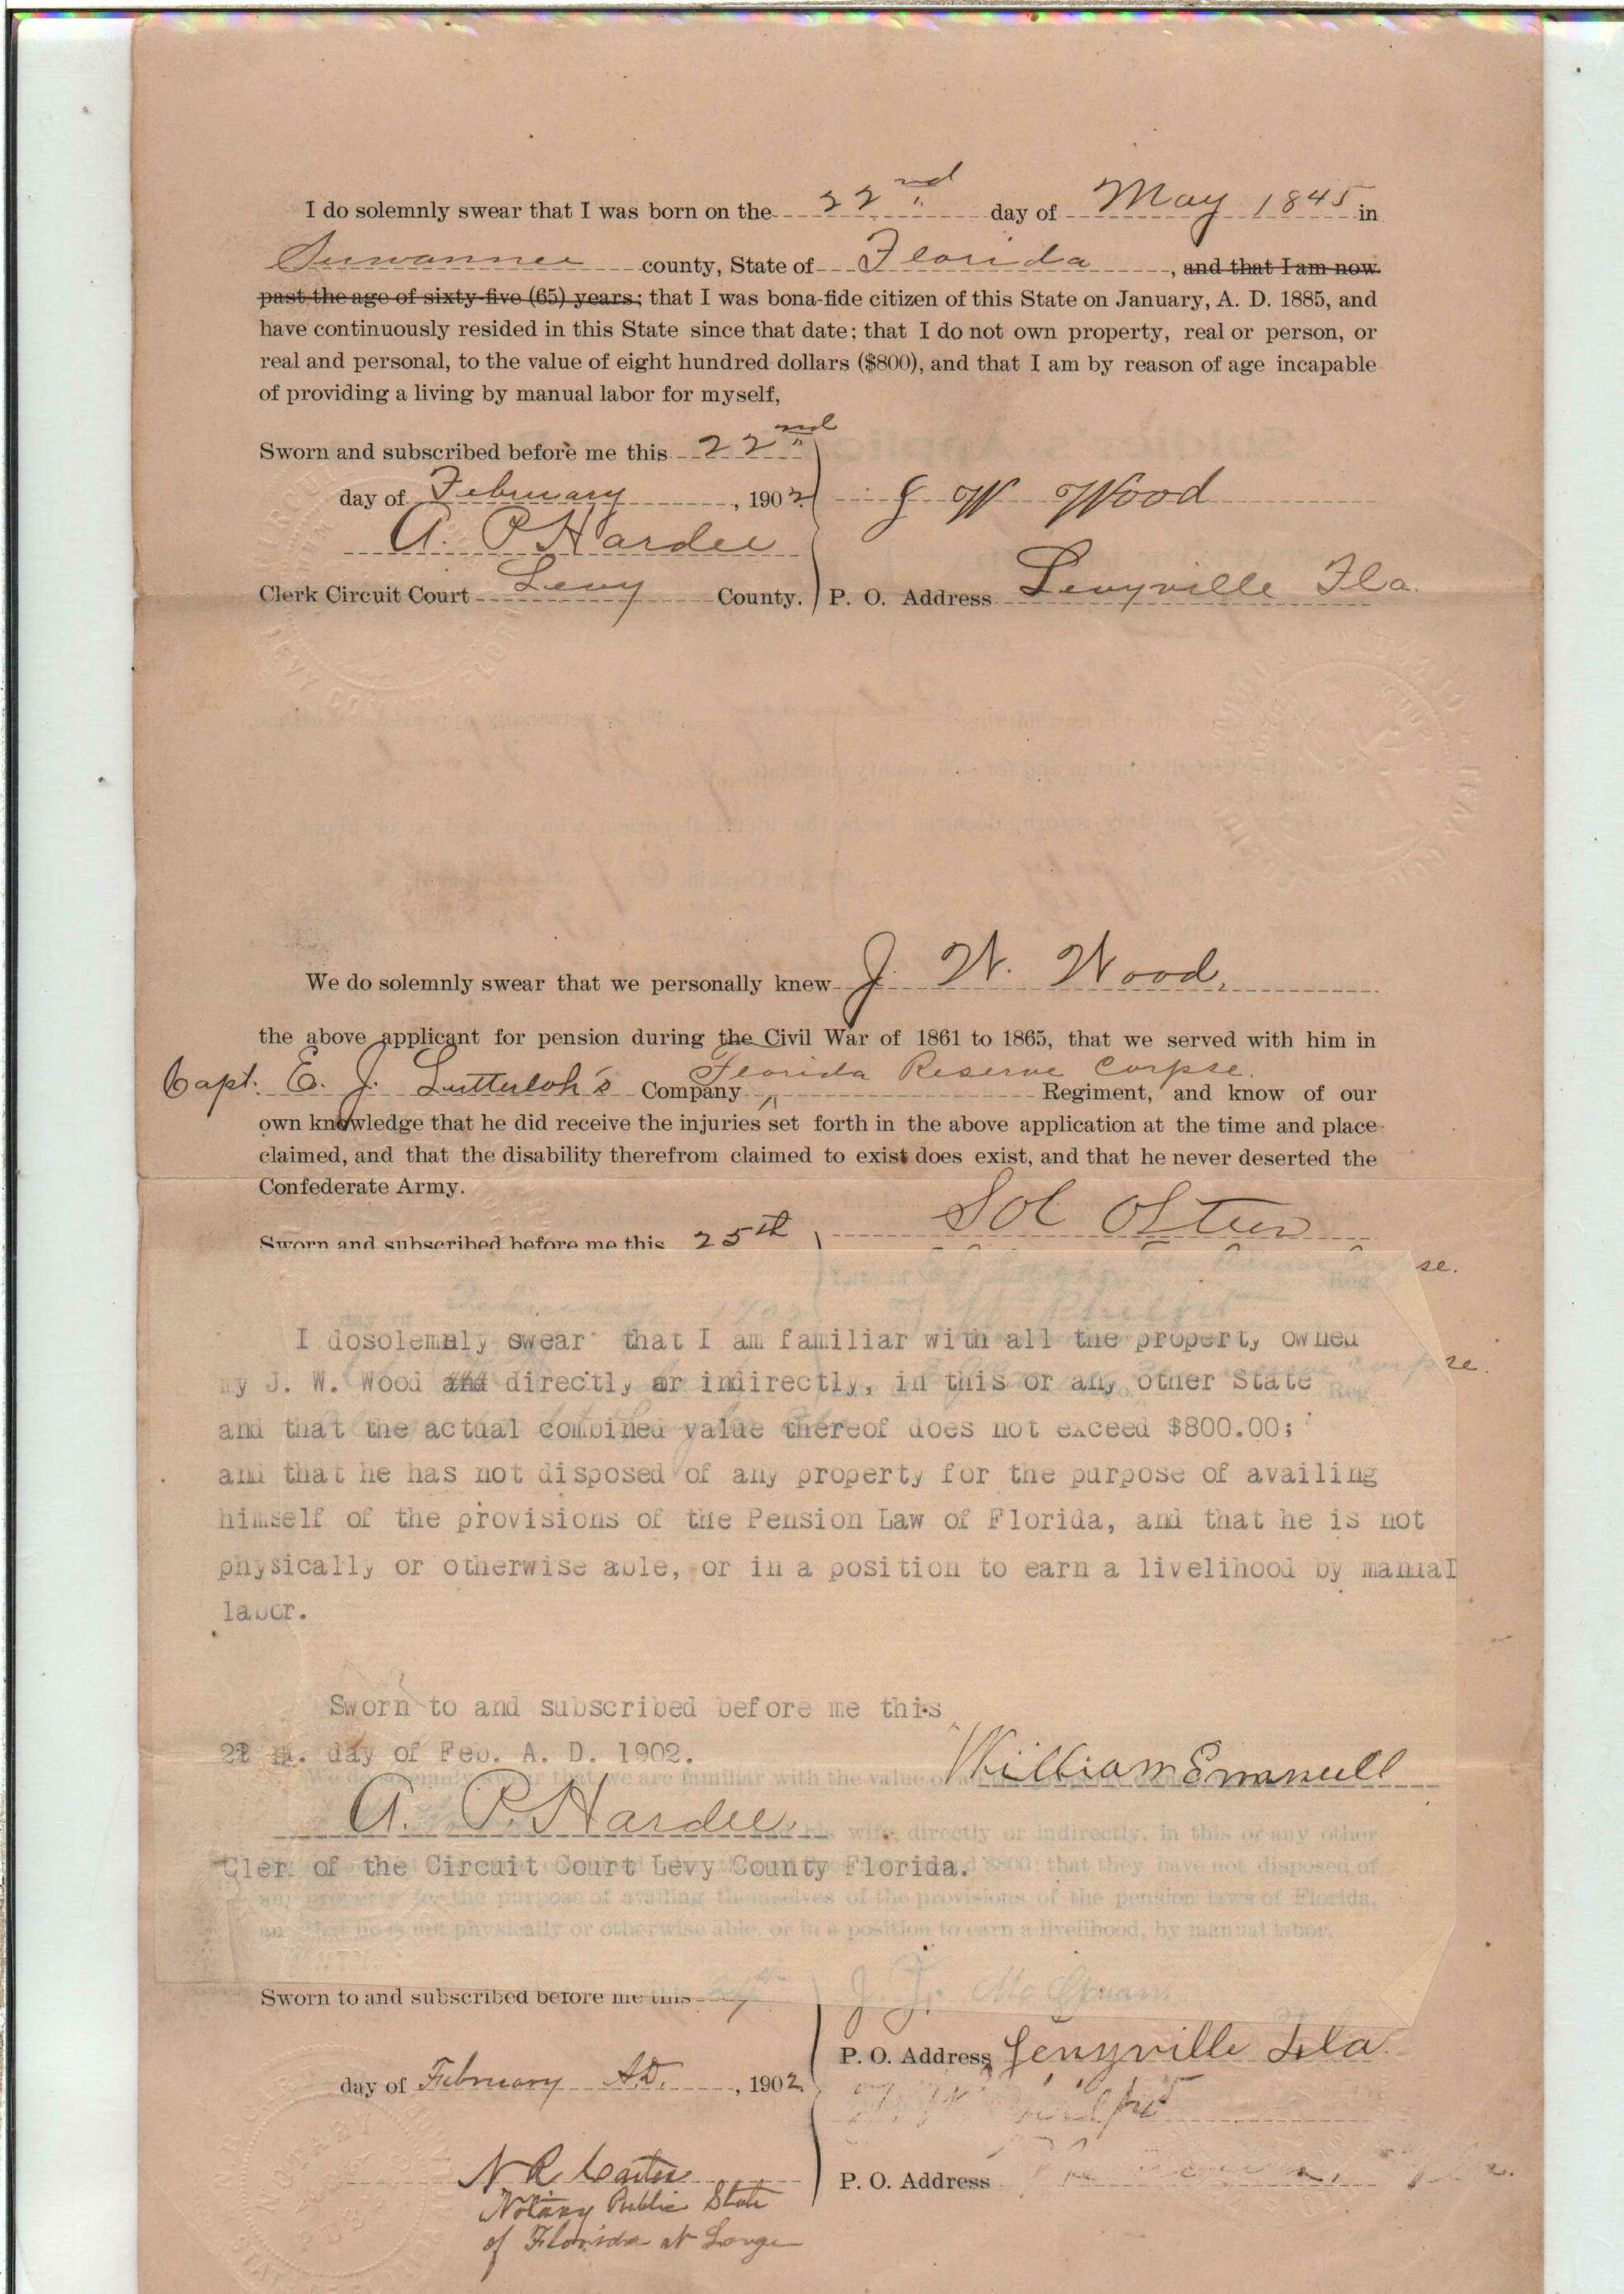 I do solemnly swear that I was born on the 22nd day of May 1845 in
Suwannee county, State of Florida, and that I am now
past the age of sixty-five (65) years; that I was bona-fide citizen of this State on January, A. D. 1885, and
have continuously resided in this State since that date; that I do not own property, real or person, or
real and personal, to the value of eight hundred dollars ($800), and that I am by reason of age incapable
of providing a living by manual labor for myself,
Sworn and subscribed before me this 22nd
day of February, 1902. J W Wood
A. P. Hardee
Clerk Circuit Court Levy County. P. O. Address Levyville Fla.
We do solemnly swear that we personally knew J. W. Wood.
the above applicant for pension during the Civil War of 1861 to 1865, that we served with him in
Florida Reserve Corpse.
Capt. E. J. Lutterloh's Company Regiment, and know of our
own knowledge that he did receive the injuries set forth in the above application at the time and place
claimed, and that the disability therefrom claimed to exist does exist, and that he never deserted the
Confederate Army.
Sworn and subscribed before me this 25th Sol
se.
I dosolemnly swear that I am familiar with all the property owned
by J. W. Wood directly or indirectly, in this or any other State
and that the actual combined value thereof does not exceed $800.00;
and that he has not disposed of any property for the purpose of availing
himself of the provisions of the Pension Law of Florida, and that he is not
physically or otherwise able, or in a position to earn a livelihood by manual
labor.
Sworn to and subscribed before me this
day of Feb. A. D. 1902.
William Emanuell
A. P. Hardee.
Clerk of the Circuit Court Levy County Florida.
wife, directly or indirectly, in this or any other
$800; that they have not disposed of
any property for the purpose of availing themselves of the provisions of the pension laws of Florida,
and that he is not physically or otherwise able, or in a position to earn a livelihood, by manual labor.
Sworn to and subscribed before me this
P. O. Address Levyville Fla.
day of February A.D., 1902.
N R Carter
P. O. Address
Notary Public State
of Florida at Large